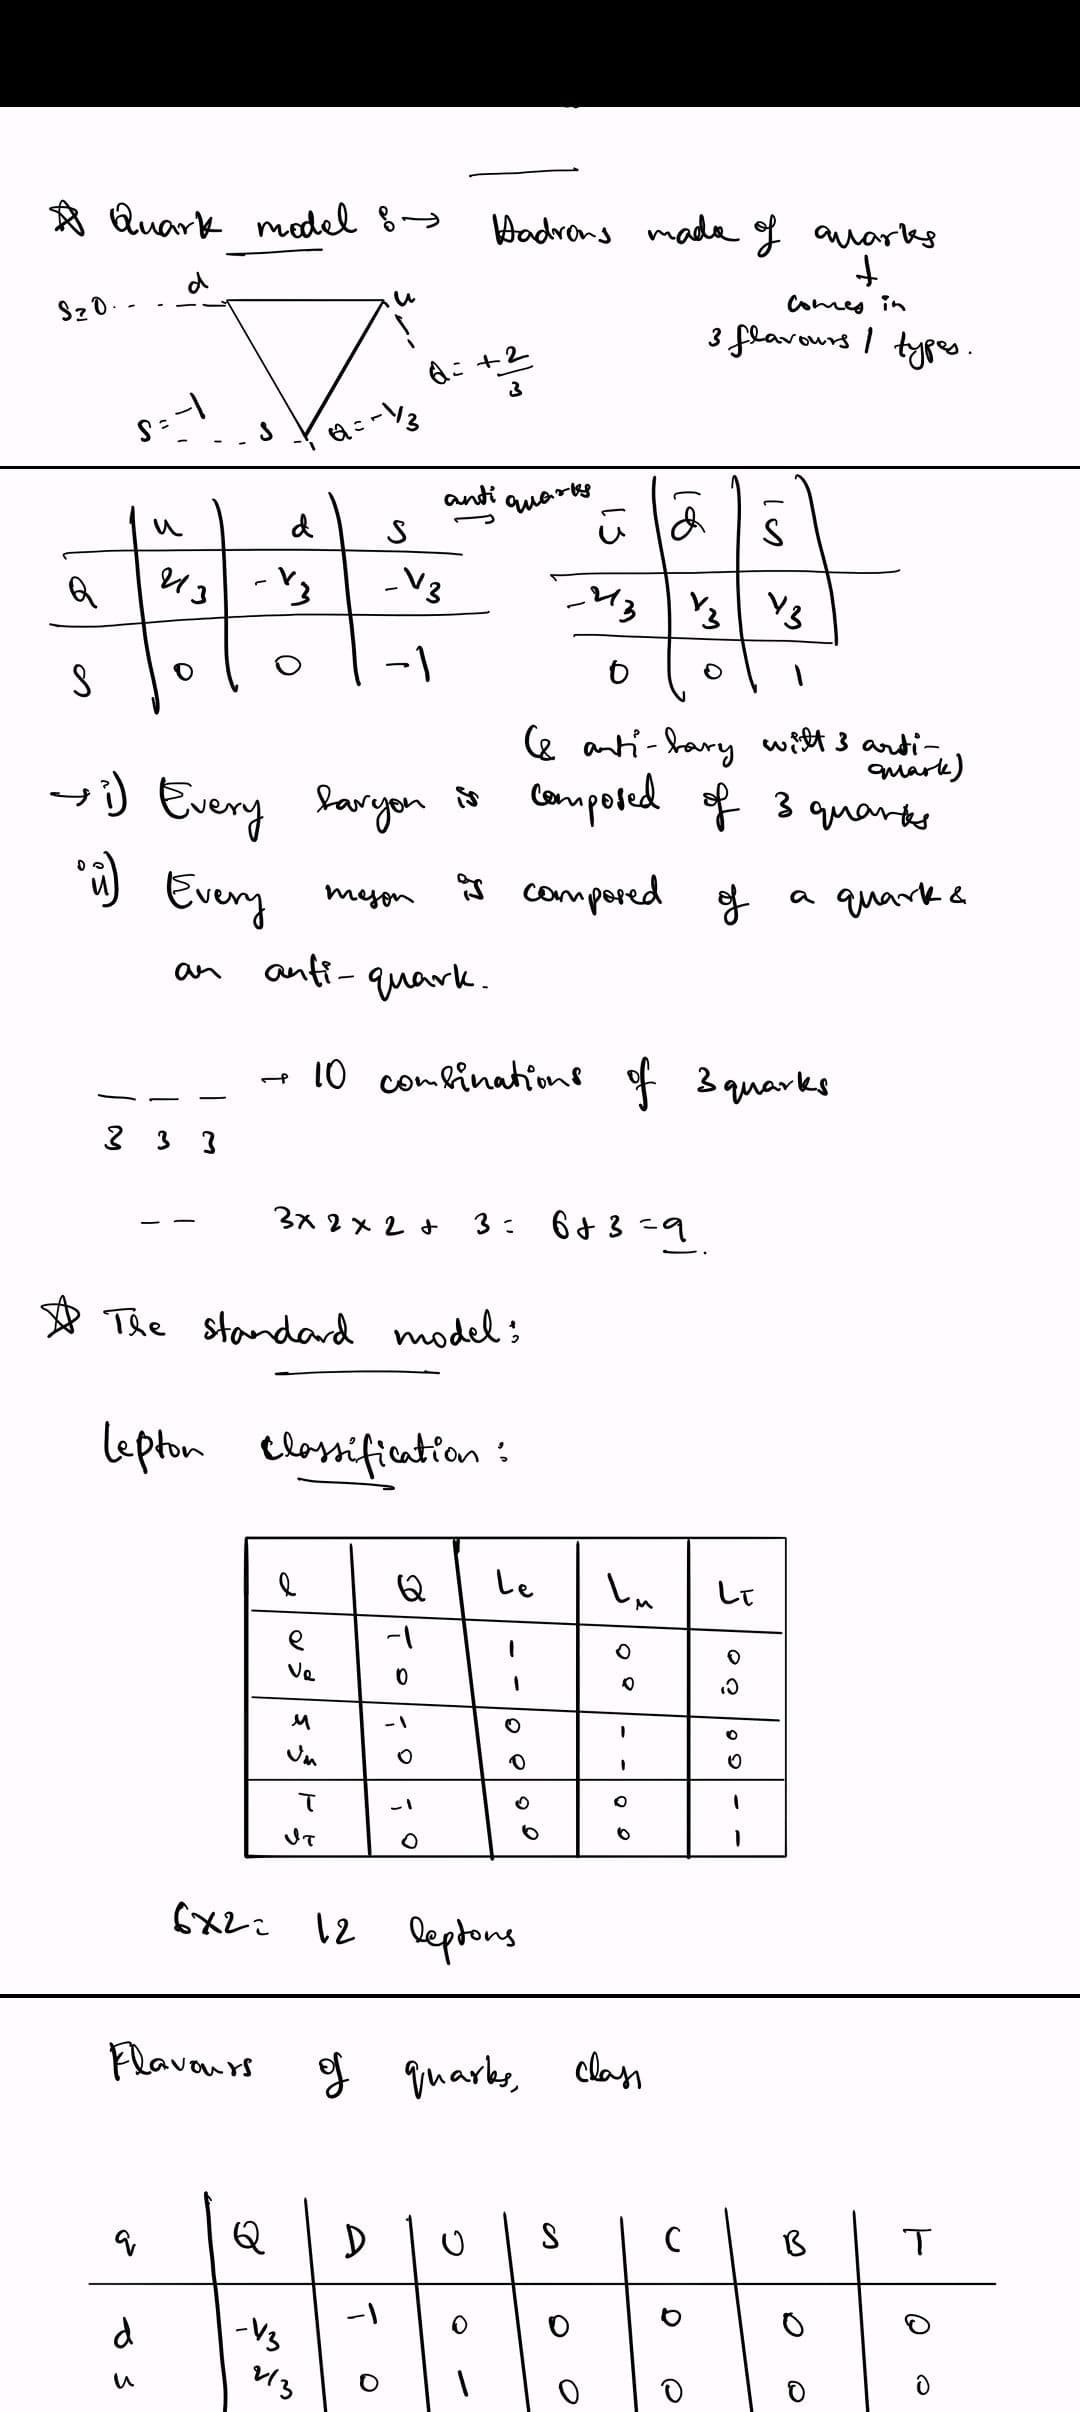 ☆ Quark model :→ Hadrons made of quarks
↓
comes in
3 flavours / types.
S=0 d u
Q = +2/3
S = -1 s Q = -1/3
| u | d | s
Q | 2/3 | -1/3 | -1/3
S | 0 | 0 | -1
anti quarks
ū | d̄ | s̄
-2/3 | 1/3 | 1/3
0 | 0 | 1
(& anti-bary with 3 anti-
quark)
→ i) Every baryon is composed of 3 quarks
ii) Every meson is composed of a quark &
an anti-quark.
_ _ _ → 10 combinations of 3 quarks
3 3 3
_ _ 3 x 2 x 2 + 3 = 6 + 3 = 9.
☆ The standard model:
Lepton classification:
l | Q | Le | Lμ | Lτ
e | -1 | 1 | 0 | 0
νe | 0 | 1 | 0 | 0
μ | -1 | 0 | 1 | 0
νμ | 0 | 0 | 1 | 0
τ | -1 | 0 | 0 | 1
ντ | 0 | 0 | 0 | 1
6x2 = 12 leptons
Flavours of quarks, class
q | Q | D | U | S | C | B | T
d | -1/3 | -1 | 0 | 0 | 0 | 0 | 0
u | 2/3 | 0 | 1 | 0 | 0 | 0 | 0